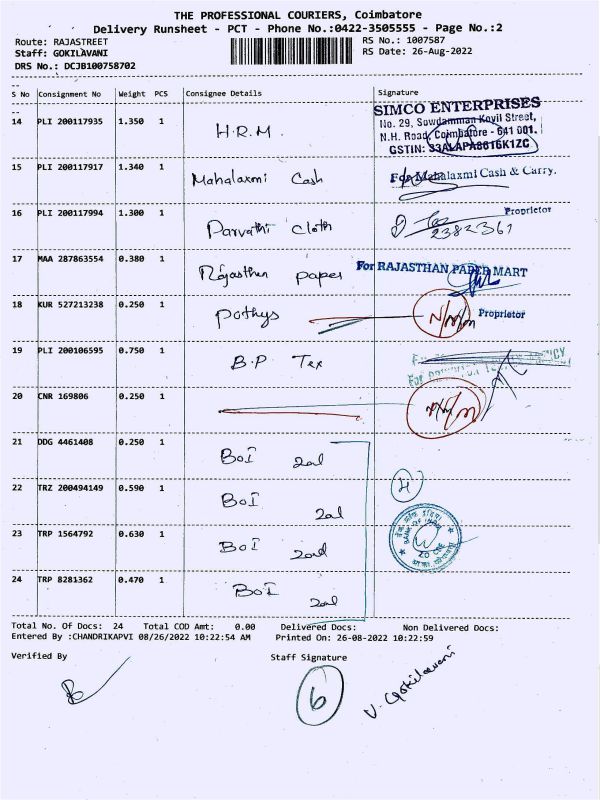 THE PROFESSIONAL COURIERS, Coimbatore
Delivery Runsheet - PCT - Phone No.:0422-3505555 - Page No.:2
Route: RAJASTREET
RS No.: 1007587
Staff: GOKILAVANI
RS Date: 26-Aug-2022
DRS No.: DCJB100758702
S No Consignment No Weight PCS Consignee Details Signature
14 PLI 200117935 1.350 1 H.R.M.
SIMCO ENTERPRISES
No. 29, Sowdamman Koyil Street,
N.H. Road, Coimbatore - 641 001.
GSTIN: 33ALAPA8616K1ZC
15 PLI 200117917 1.340 1 Mahalaxmi Cash
For Mahalaxmi Cash & Carry.
Proprietor
16 PLI 200117994 1.300 1 Parvathi cloth
2382361
17 MAA 287863554 0.380 1 Rajasthan paper
For RAJASTHAN PAPER MART
Proprietor
18 KUR 527213238 0.250 1 pothys
19 PLI 200106595 0.750 1 B.P Tex
20 CNR 169806 0.250 1
21 DDG 4461408 0.250 1 BOI
22 TRZ 200494149 0.590 1 BOI
4
23 TRP 1564792 0.630 1 BOI
BANK OF INDIA
24 TRP 8281362 0.470 1 BOI
Total No. Of Docs: 24 Total COD Amt: 0.00 Delivered Docs: Non Delivered Docs:
Entered By :CHANDRIKAPVI 08/26/2022 10:22:54 AM Printed On: 26-08-2022 10:22:59
Verified By Staff Signature
6
V. Gokilavani